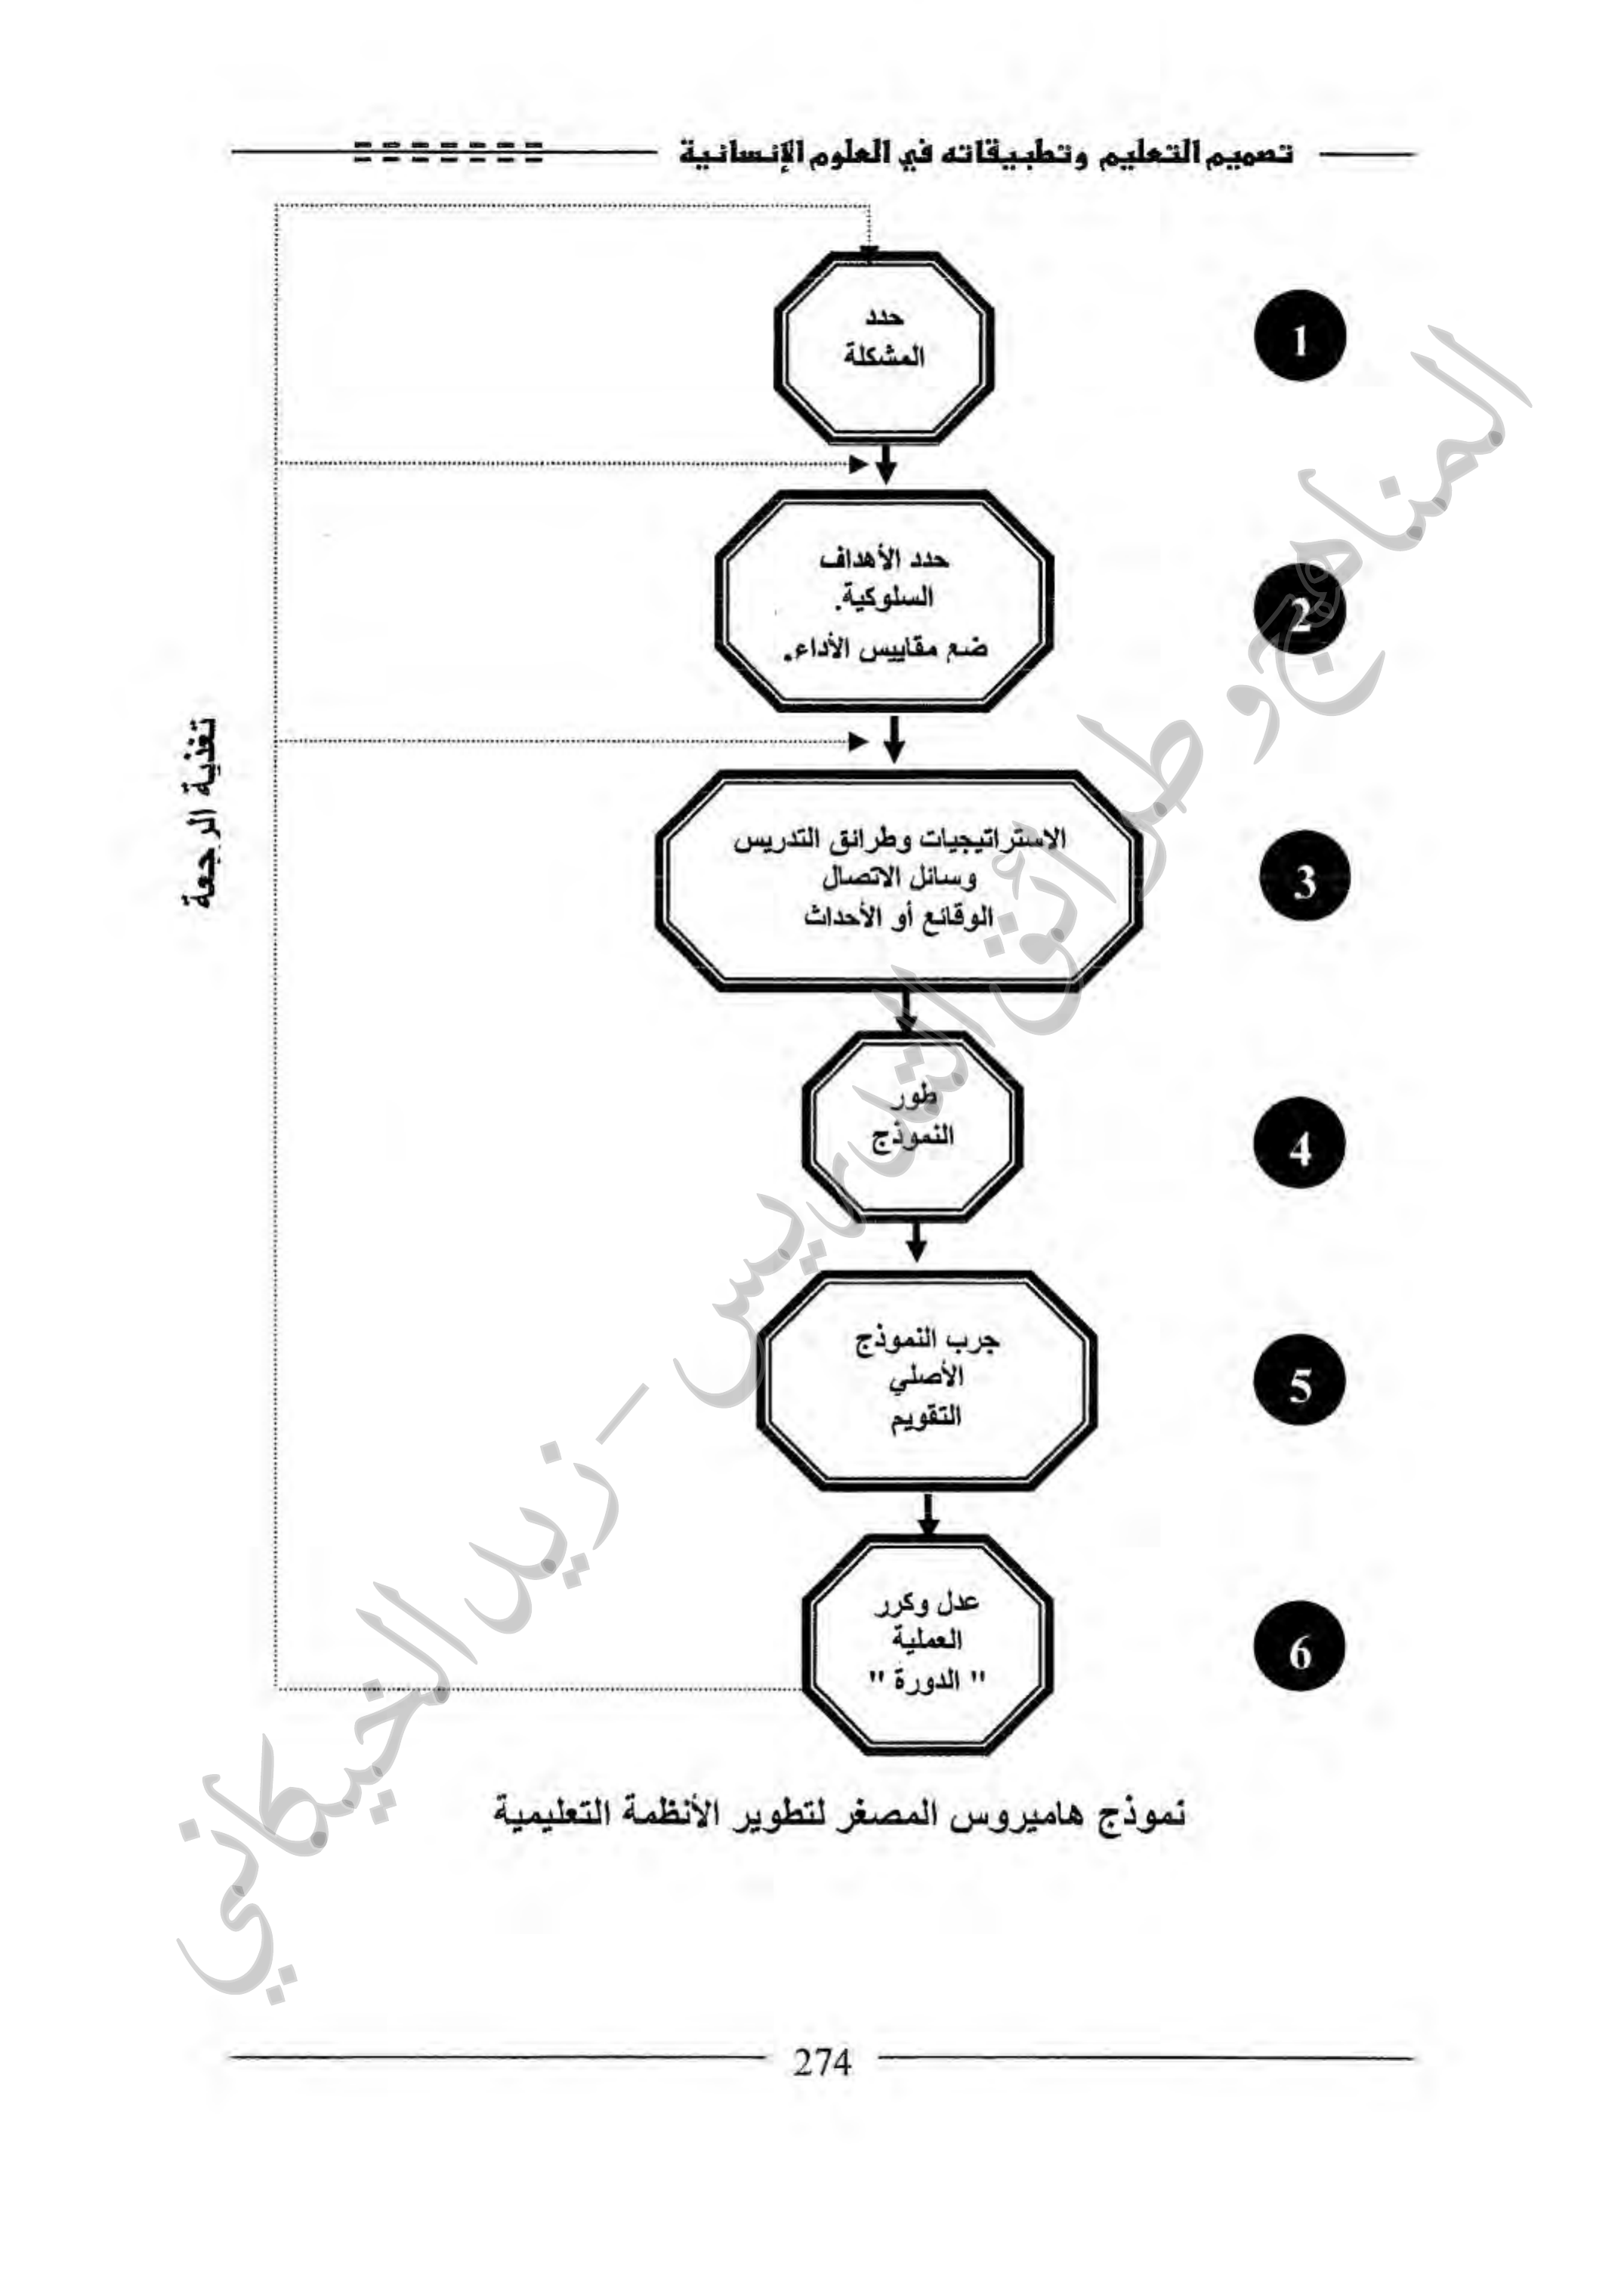 تصميم التعليم وتطبيقاته في العلوم الإنسانية
1
حدد
المشكلة
2
حدد الأهداف
السلوكية.
ضع مقاييس الأداء.
تغذية الرجعة
3
الاستراتيجيات وطرائق التدريس
وسائل الاتصال
الوقائع أو الأحداث
4
طور
النموذج
5
جرب النموذج
الأصلي
التقويم
6
عدل وكرر
العملية
" الدورة "
نموذج هاميروس المصغر لتطوير الأنظمة التعليمية
274
المناهج وطرائق التدريس - زيد الخيكاني